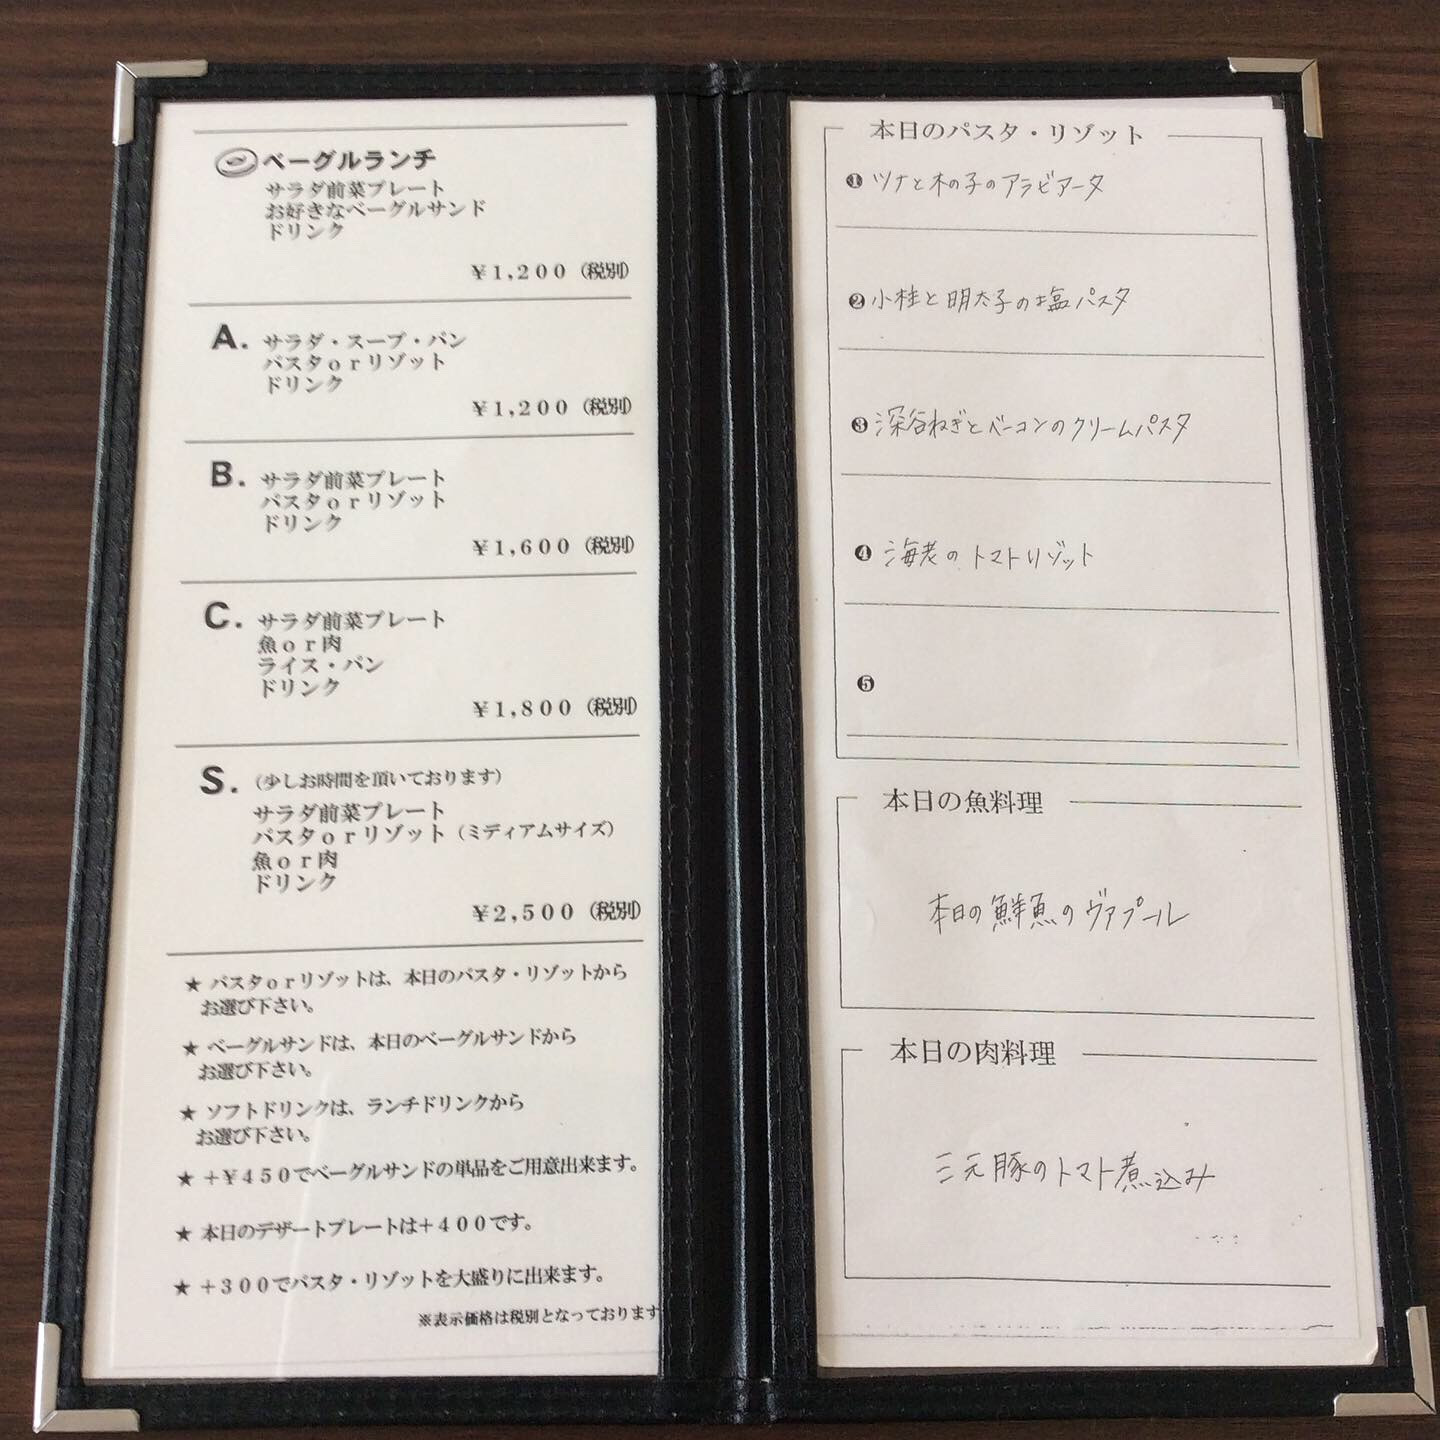 ベーグルランチ
サラダ前菜プレート
お好きなベーグルサンド
ドリンク
¥1,200(税別)
A. サラダ・スープ・パン
パスタorリゾット
ドリンク
¥1,200(税別)
B. サラダ前菜プレート
パスタorリゾット
ドリンク
¥1,600(税別)
C. サラダ前菜プレート
魚or肉
ライス・パン
ドリンク
¥1,800(税別)
S. (少しお時間を頂いております)
サラダ前菜プレート
パスタorリゾット(ミディアムサイズ)
魚or肉
ドリンク
¥2,500(税別)
★ パスタorリゾットは、本日のパスタ・リゾットから
お選び下さい。
★ ベーグルサンドは、本日のベーグルサンドから
お選び下さい。
★ ソフトドリンクは、ランチドリンクから
お選び下さい。
★ +¥450でベーグルサンドの単品をご用意出来ます。
★ 本日のデザートプレートは+400です。
★ +300でパスタ・リゾットを大盛りに出来ます。
※表示価格は税別となっております
本日のパスタ・リゾット
❶ ツナと木の子のアラビアータ
❷ 小柱と明太子の塩パスタ
❸ 深谷ねぎとベーコンのクリームパスタ
❹ 海老のトマトリゾット
❺
本日の魚料理
本日の鮮魚のヴァプール
本日の肉料理
三元豚のトマト煮込み